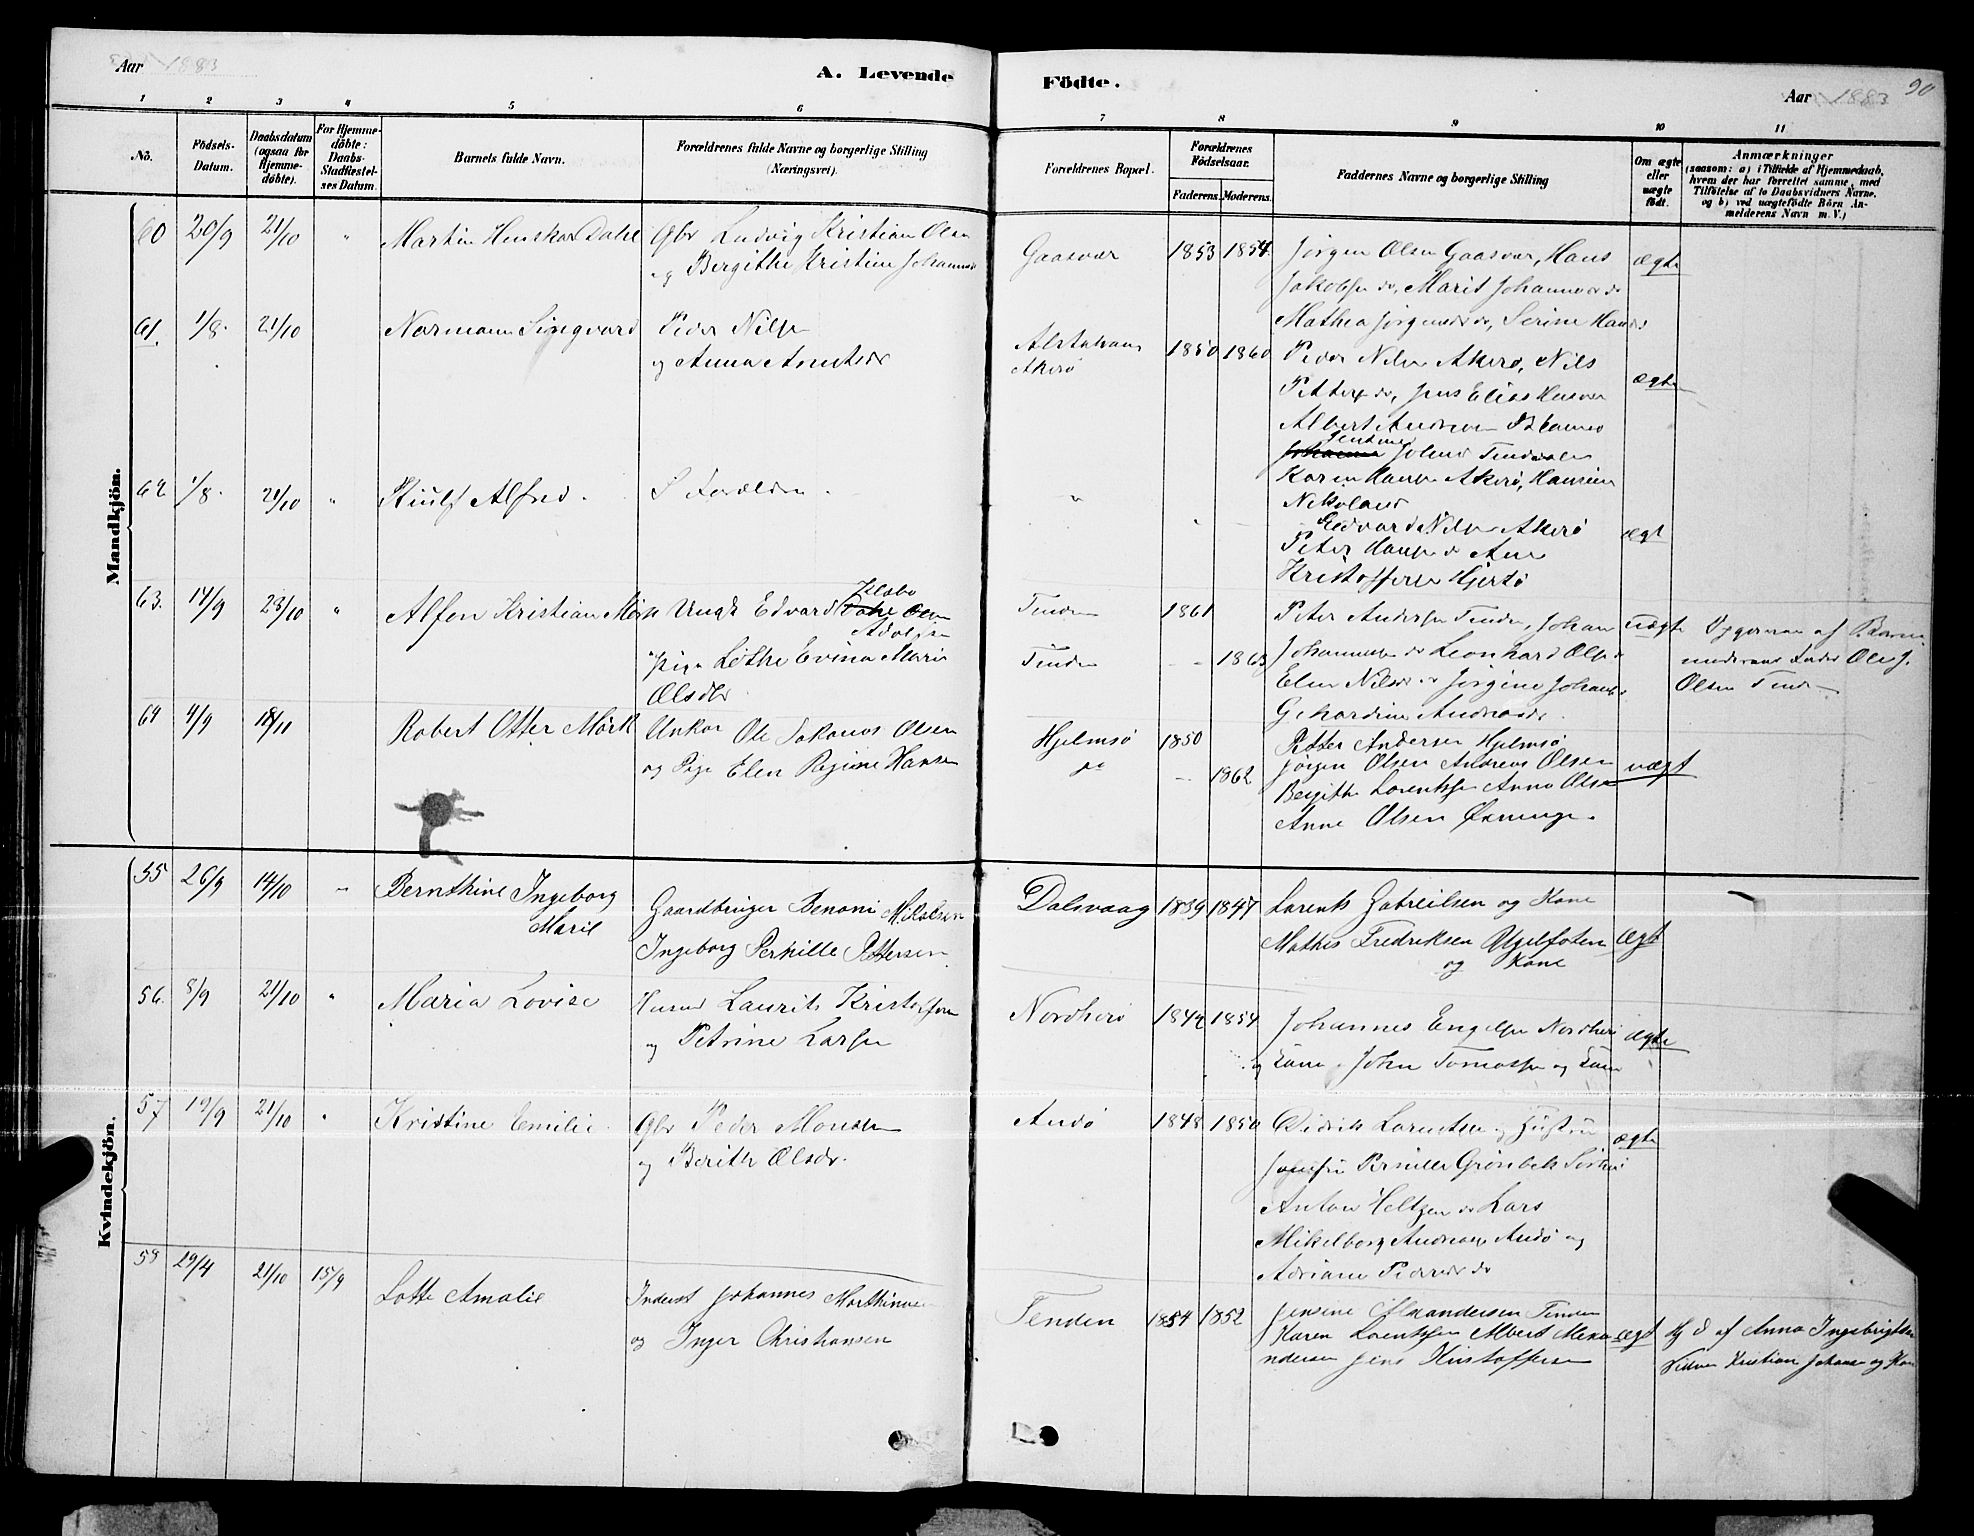 Aar 1883
A. Levende
Födte.
Aar 1883
90
1 2 3 4 5 6 7 8 9 10 11
No.
Födsels-
Datum.
Daabsdatum
(ogsaa for
Hjemme-
döbte).
For Hjemme-
döbte:
Daabs-
Stadfæstel-
ses Datum.
Barnets fulde Navn.
Forældrenes fulde Navne og borgerlige Stilling
(Næringsvei).
Forældrenes Bopæl.
Forældrenes
Födselsaar.
Faderens. Moderens.
Faddernes Navne og borgerlige Stilling
Om ægte
eller
uægte
født.
Anmærkninger
(saasom: a) i Tilfælde af Hjemmedaab,
hvem der har forrettet samme, med
Tilföielse af to Daabsvidners Navne,
og b) ved uægtefödte Börn An-
melderens Navn m. V.)
Mandkjön.
60 20/9 21/10 " Martin Dahl
Gbr Ludvig Kristian Olsen
og Bergithe Kristine Johannesd
Gaasvær 1853 1854
Jørgen Olsen Gaasvær, Hans
Jakobsen do, Marit Johannesd do
Mathea Jørgensd do, Serine Hansd
ægte
61. 1/8. 21/10 Normann Singvard
Peder Nilsen
og Anna Arntsdr
Alstahaug
Akerö
1850 1860
Peder Nilsen Akerö, Nils
Petters do, Jens Elias Husvær
Albert Andresen
Karen Hansen Akerö,
Nikolaisd
ægte
62 1/8. 21/10 " Alfred.
S. Forældre.
"
Edvard Nilsen Akerö
Peter Hansen do
Kristoffersen Hjertö
ægt
63. 14/9 28/10 " Alfon Kristian Mörk
Ungk Edvard Olsen
Pige Lothe Evina Marie
Olsdtr
Tenden
Tenden
1861
1863
Peter Andersen Tenden, Johan
Johannesen do Leonhard Olsen do
Elen Nilsd do Jørgine Johansd
Gehardine Andreasdr.
uægte
Opgivenen af Barne
moderens Fader Ole J.
Olsen Tenden
64 4/9 18/11 Robert Otter Mörk
Unkar Ole Olsen
og Pige Elen Regine Hansen
Hjelmsö
do
1850
1862
Petter Andersen Hjelmsö
Jörgen Olsen Andreas Olsen
Bergitte Lorentsen Anna Olsen
Anne Olsen
uægt
Kvindekjön.
55 26/9 14/10 " Bernthine Ingeborg
Marie
Gaardbruger Benoni Mikalsen
Ingeborg Pernille Pettersen
Dalsvaag 1839 1847
Lorents Gabreilsen og Kone
Mathis Fredriksen Ugelfoten
og Kone
ægt
56. 8/9 21/10 " Maria Lovise
Husmd Laurits Kristoffersen
og Petrine Larsen
Nordherö 1842 1854
Johannes Engelsen Nordherö
og Kone. John Tomassen og Kone
ægte
57 19/9 21/10 " Kristine Emilie.
Gbr Peder Monsen
og Berith Olsdr.
Andö 1848 1850
Didrik Lorentsen og Hustru
Jomfru Pernille Grönbek
Anton Heltzen do Lars
Mikelborg Andreas Andö og
Adriane Pedersd do
ægte
58 29/4 21/10 15/9 Lotte Amalie
Inderst Johannes Marthinusen
og Inger Christiansen
Tenden 1854 1852
Jensine Alexandersen Tenden
Karen Lorentssen Albert Alexa
ndersen Jens Kristoffersen
ægt
Hj d af Anna Ingebrigtsen
Vidner Kristian Johans og Kone